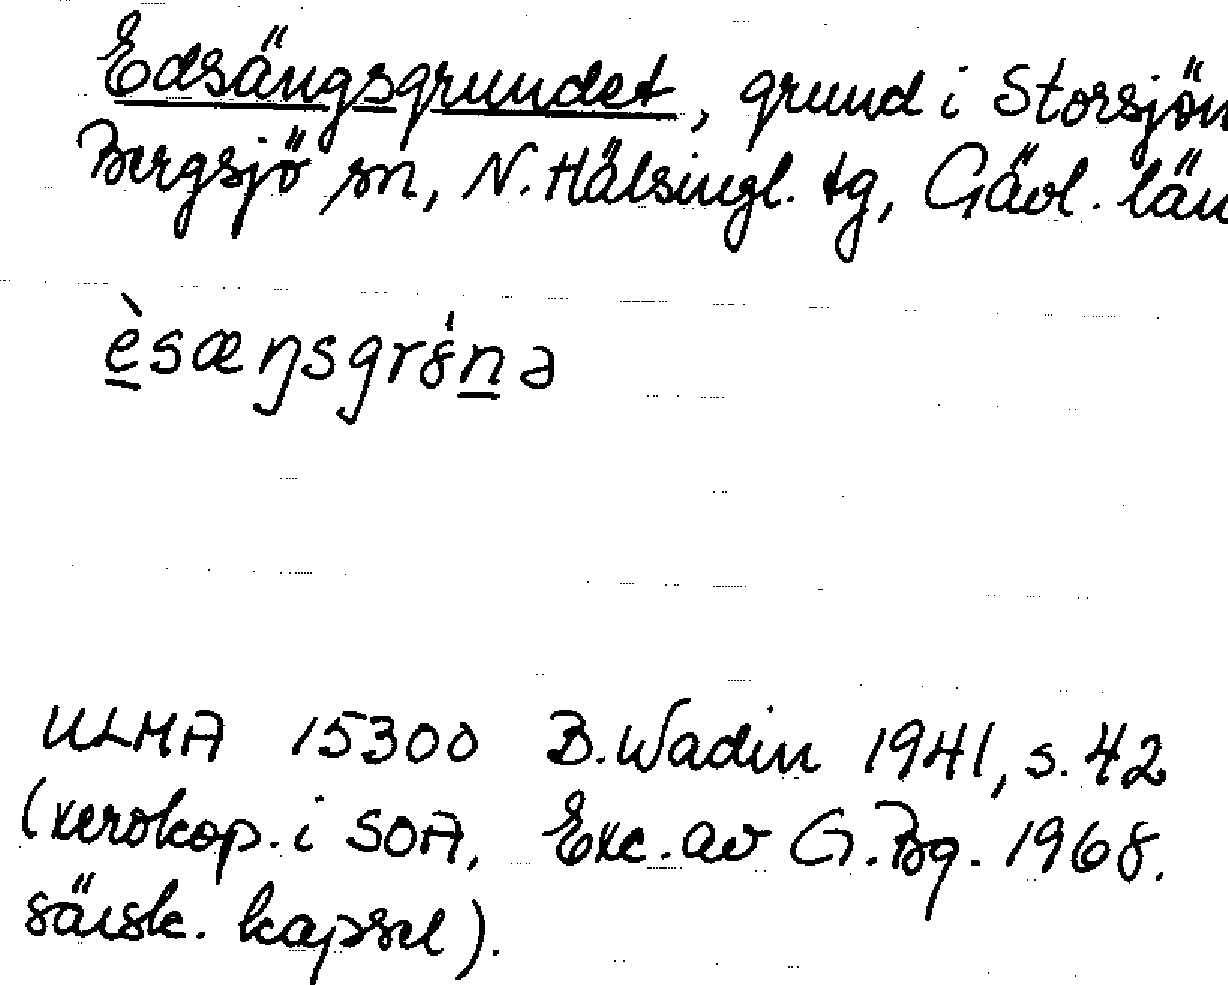 Edsängsgrundet, grund i Storsjön
Bergsjö sn, N. Hälsingl. tg, Gävl. län
èsæŋsgrȣ́nə
ULMA 15300 B. Wadin 1941, s. 42
(xerokop. i SOA, Exc. av G. Bg. 1968.
särsk. kapsel).